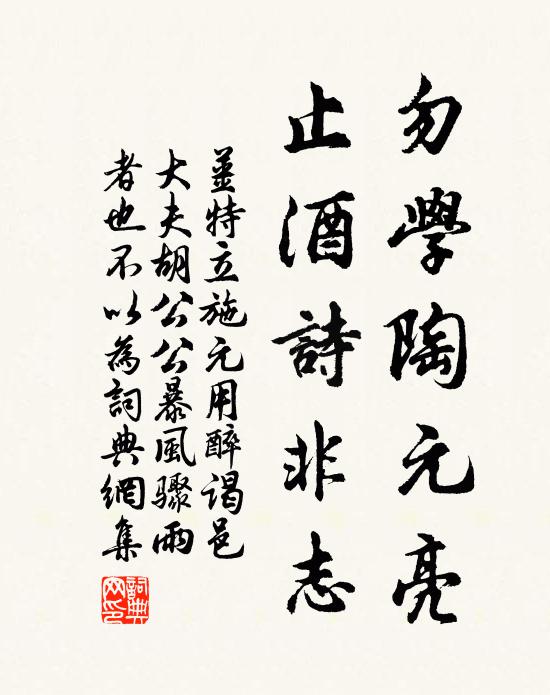 勿學陶元亮
止酒詩非志
姜特立施元用醉謁邑
大夫胡公公暴風驟雨
者也不以為詞典網集
詞典網印